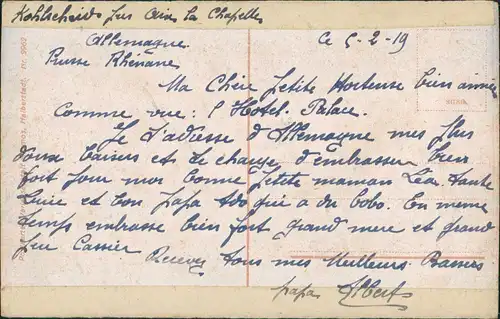 Kohlscheid pres Aix la Chapelle
Allemagne ce 5-2-19
Prusse Rhénane
Ma Chère petite Hortense bien aimée
Comme vue: l'Hotel Palace.
Je t'adresse d'Allemagne mes plus
doux baisers et te charge d'embrasser bien
fort pour moi bonne petite maman Lea, tante
et bon papa Ado qui a du bobo. En meme
temps embrasse bien fort grand mere et grand
Cassier
Recevez tous mes Meilleurs Baisers
papa Albert